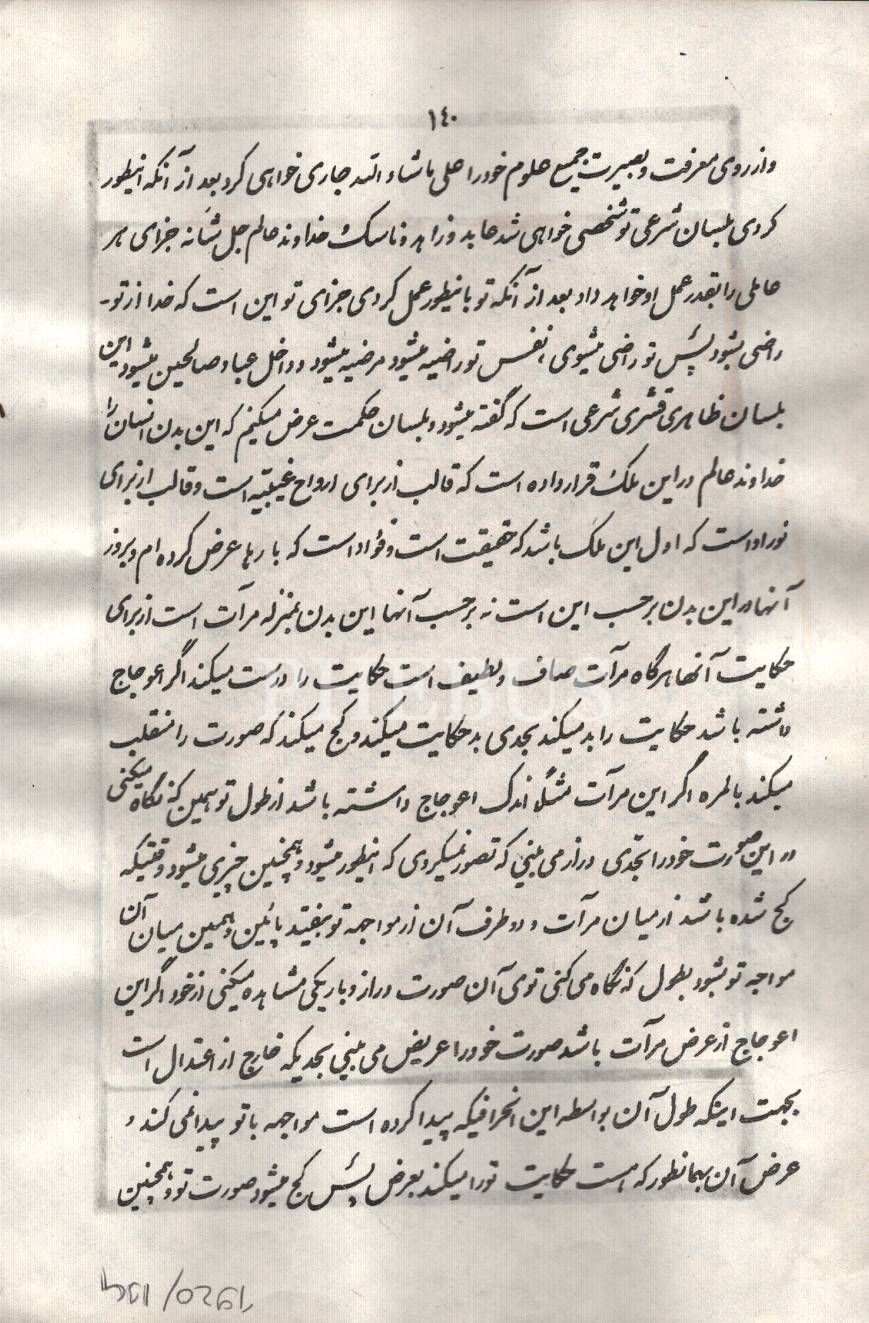 ١٤٠
و از روی معرفت و بصیرت جمیع علوم خود را علی ماشاء الله جاری خواهی کرد بعد از آنکه اینطور
کردی بلسان شرعی تو شخصی خواهی شد عابد و زاهد و ناسک خداوند عالم جل شأنه جزای هر
عاملی را بقدر عمل او خواهد داد بعد از آنکه تو باینطور عمل کردی جزای تو این است که خدا از تو
راضی بشود پس تو راضی میشوی نفس تو راضیه میشود مرضیه میشود و داخل عباد صالحین میشود این
بلسان ظاهری قشری شرعی است که گفته میشود و بلسان حکمت عرض میکنم که این بدن انسان را
خداوند عالم در این ملک قرار داده است که قالب از برای ارواح غیبیه است و قالب از برای
نور او است که اول این ملک باشد که حقیقت است و فؤاد است که بارها عرض کرده ام و بروز
آنها در این بدن بر حسب این است نه بر حسب آنها این بدن بمنزله مرآت است از برای
حکایت آنها هر گاه مرآت صاف و لطیف است حکایت را درست میکند اگر اعوجاج
داشته باشد حکایت را بد میکند بحدی بد حکایت میکند و کج میکند که صورت را منقلب
میکند بالمره اگر این مرآت مثلا اندک اعوجاج داشته باشد از طول تو همین که نگاه میکنی
در این صورت خود را بحدی دراز می بینی که تصور نمیکردی که اینطور میشود و همچنین چیزی میشود وقتیکه
کج شده باشد از میان مرآت و دو طرف آن از مواجهه تو بیفتد پائین و همین میان آن
مواجه تو بشود بطول که نگاه می کنی توی آن صورت دراز و باریکی مشاهده میکنی از خود اگر این
اعوجاج از عرض مرآت باشد صورت خود را عریض می بینی بحدیکه خارج از اعتدال است
بجهت اینکه طول آن بواسطه این انحرافیکه پیدا کرده است مواجهه با تو پیدا نمی کند و
عرض آن بهمانطور که هست حکایت تو را میکند بعرض پس کج میشود صورت تو و همچنین